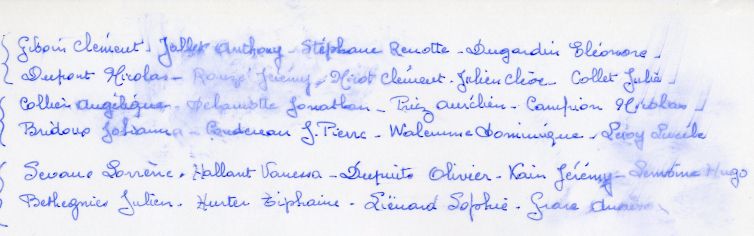 Clément - Jallet Anthony - Stéphane Renotte - Dugardin Eléonore -
Dupont Nicolas - Rouzé Jérémy - Nirot Clément - Julien Cléoe - Collet Julie -
Collier Angélique - Delamotte Jonathan - Priez Aurélien - Campion Nicolas -
Bridoux Johanna - Coudereau J. Pierre - Walemme Dominique - Leroy Lucile
Lorrène - Hallant Vanessa - Dupuits Olivier - Kain Jérémy - Lemoine Hugo
Bethegnies Julien - Hurter Tiphaine - Liénard Sophie -